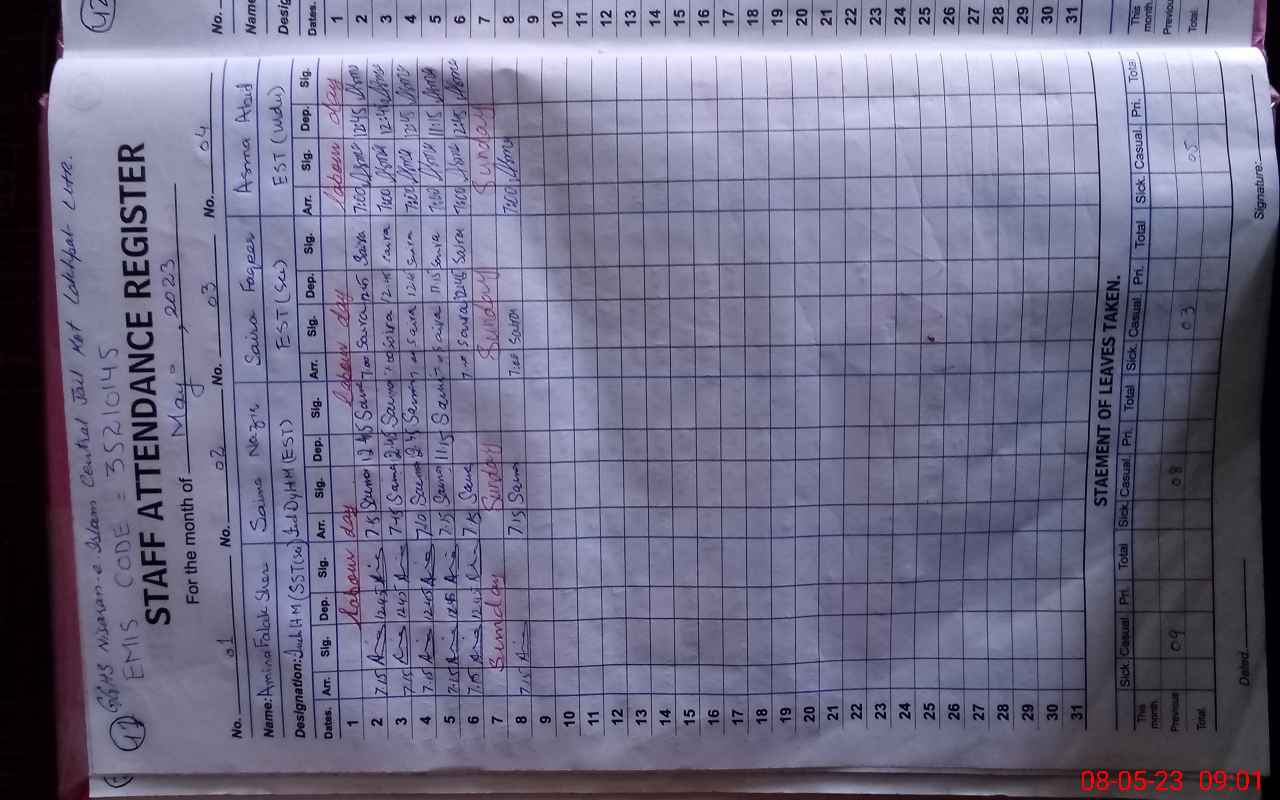 EMIS CODE = 35210145
STAFF ATTENDANCE REGISTER
For the month of May, 2023
No. 01 No. 02 No. 03 No. 04
Name: Amina Falak Sher Saima Nazir Saira Faqeer Asma Abid
Designation: (SST(Sc) (EST) EST (Sci) EST (Urdu)
Dates. Arr. Sig. Dep. Sig. Arr. Sig. Dep. Sig. Arr. Sig. Dep. Sig. Arr. Sig. Dep. Sig.
1 Labour day Labour day Labour day Labour day
2 7:15 12:45 7:15 Saima 12:45 Saima 7:00 Saira 12:45 Saira 7:00 Asma 12:45 Asma
3 7:15 12:45 7:15 Saima 12:45 Saima Saira 12:45 Saira 7:00 Asma 12:45 Asma
4 7:15 12:45 7:10 Saima 12:45 Saima Saira 12:45 Saira 7:00 Asma 12:45 Asma
5 7:15 12:45 7:15 Saima 11:15 Saima Saira 11:15 Saira 7:00 Asma 11:15 Asma
6 7:15 12:45 7:15 Saima 7:00 Saira 12:45 Saira 7:00 Asma 12:45 Asma
7 Sunday Sunday Sunday Sunday
8 7:15 7:15 Saima 7:00 Saira 7:00 Asma
9
10
11
12
13
14
15
16
17
18
19
20
21
22
23
24
25
26
27
28
29
30
31
STAEMENT OF LEAVES TAKEN.
Sick. Casual Pri. Total Sick. Casual. Pri. Total Sick. Casual. Pri. Total Sick. Casual. Pri. Total
This month
Previous 09 08 03 05
Total.
Dated Signature:
No.
Name
Desig
Dates.
1
2
3
4
5
6
7
8
9
10
11
12
13
14
15
16
17
18
19
20
21
22
23
24
25
26
27
28
29
30
31
This month
Previous
Total.
08-05-23 09:01